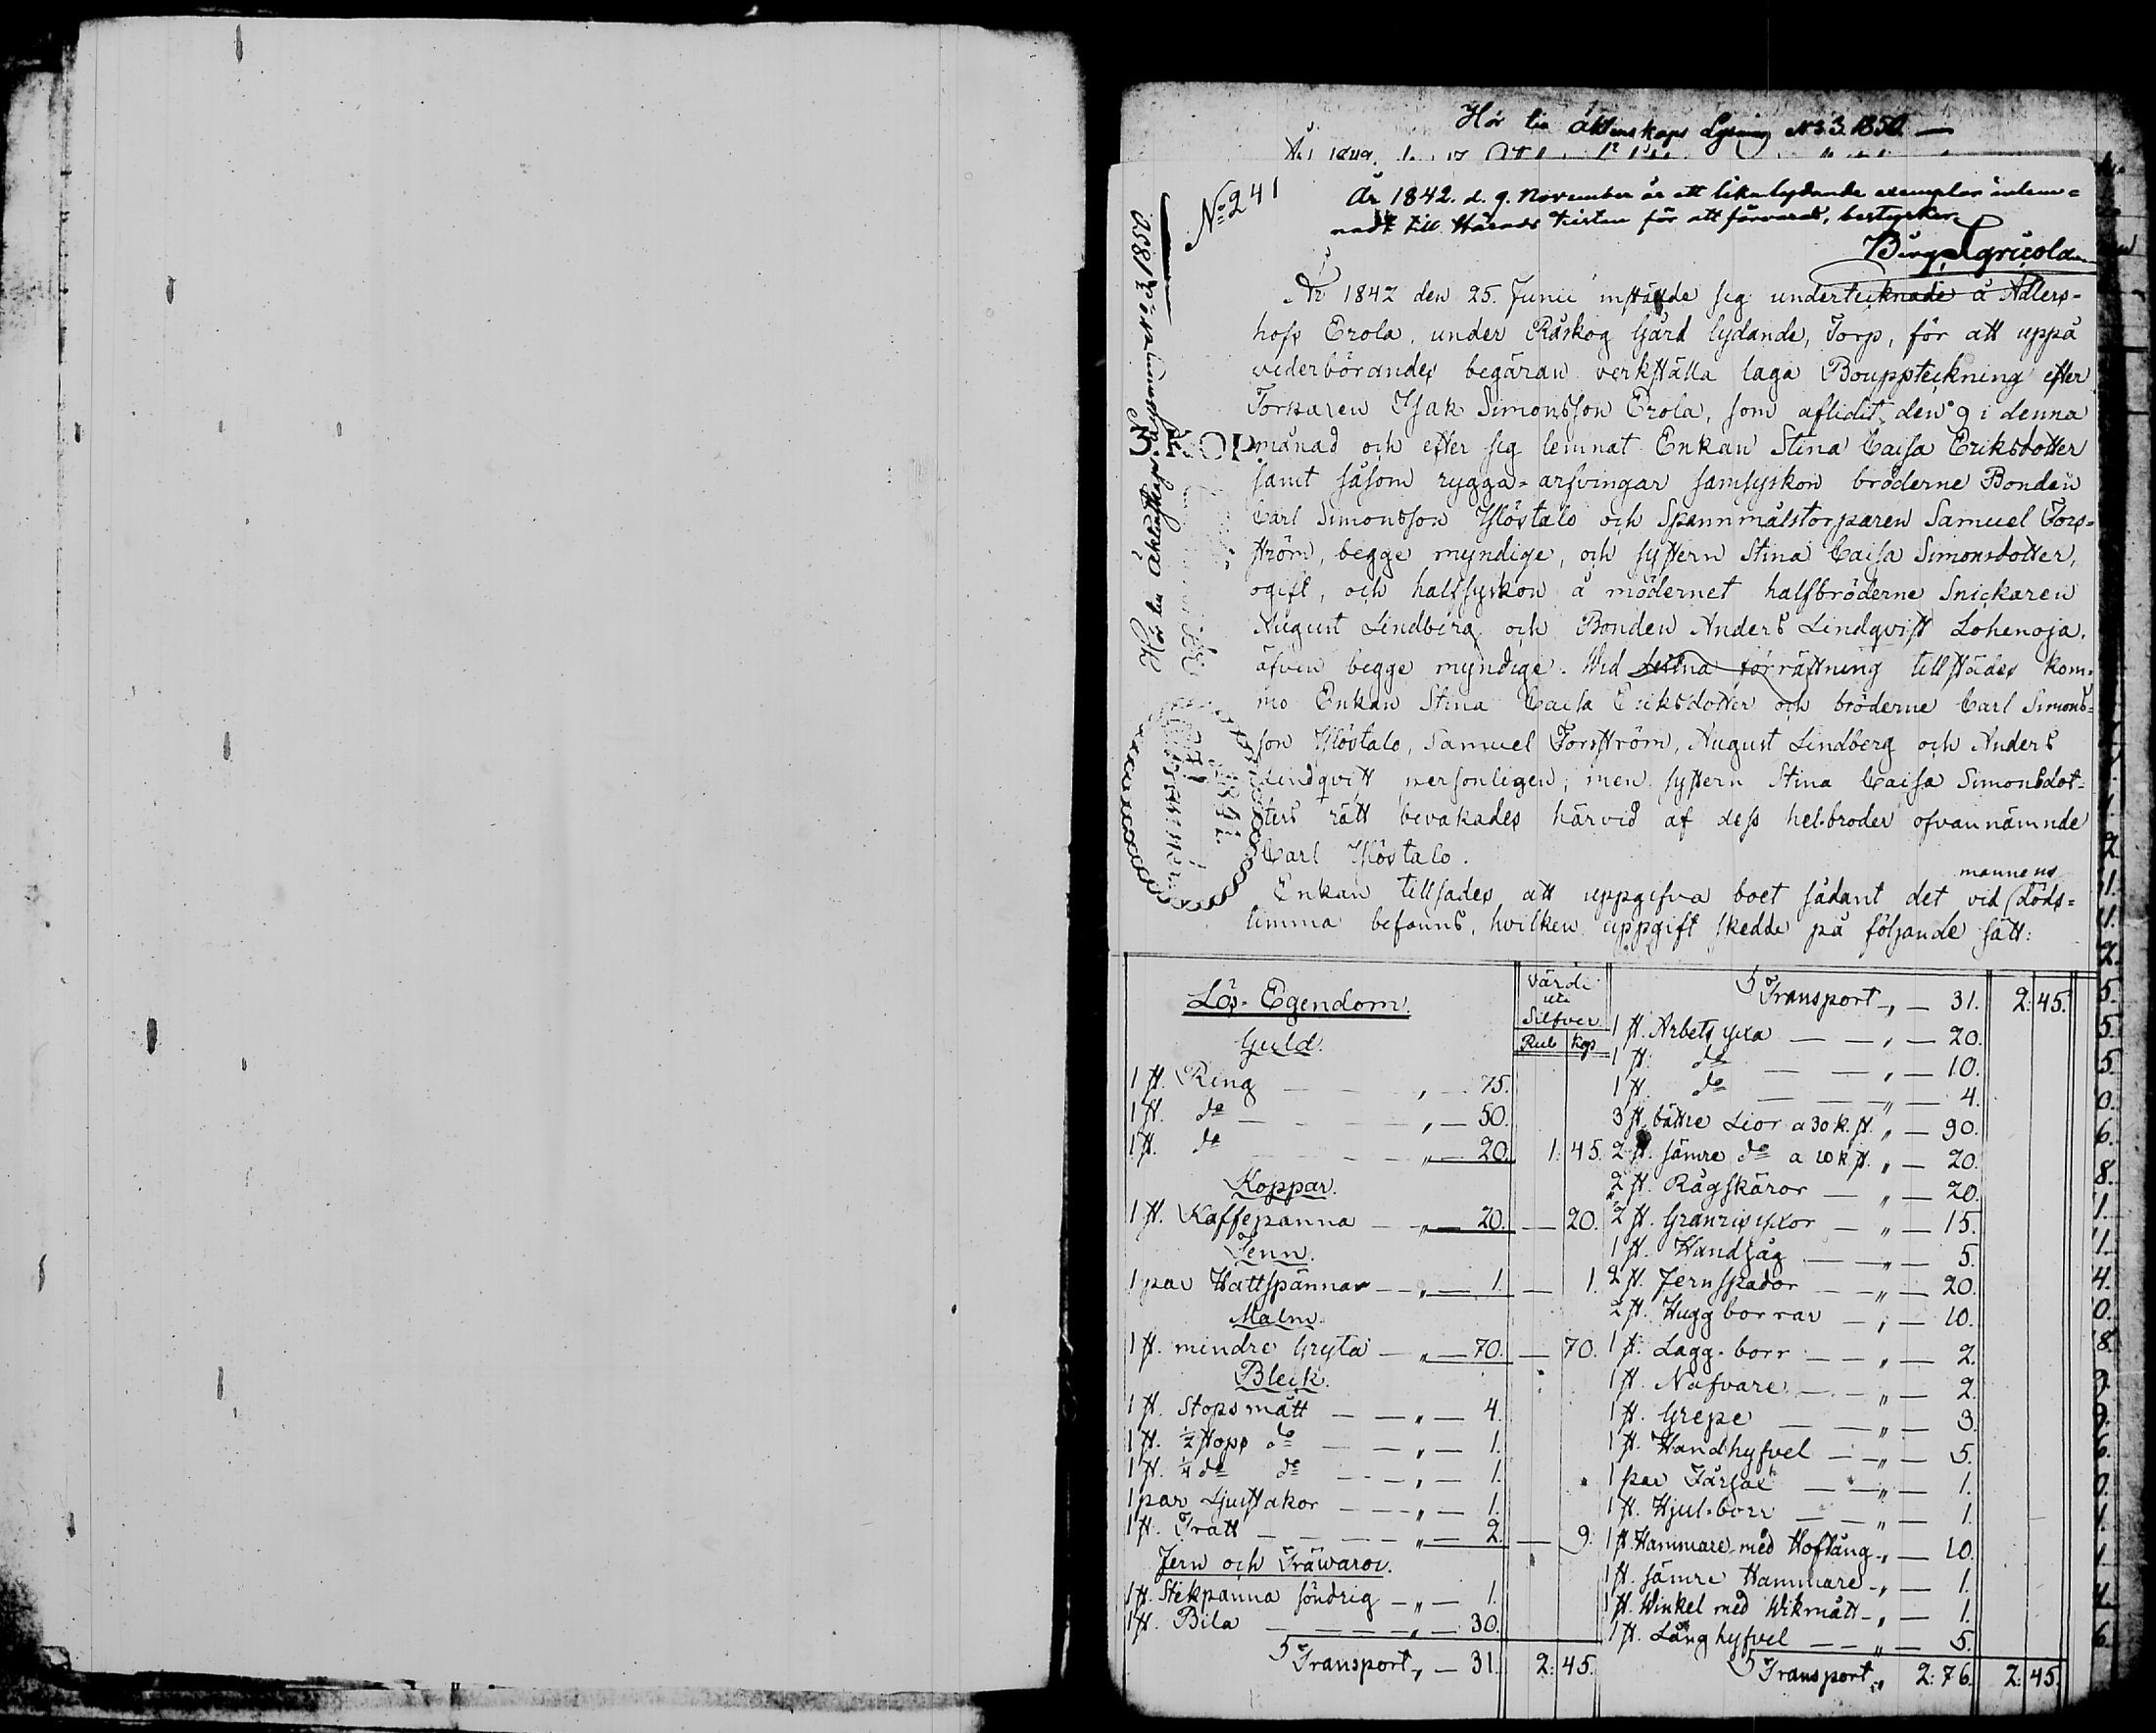 Hör till äktenskaps Lysning N:o 3. 1850. —
N:o 241
År 1842. d. 9. November är ett likalydande exemplar inlem-
nadt till Härads Kistan för att förvaras, bestyrker
Birg. Agricola
Hör till Äktenskaps Lysning N:o 3/1850
År 1842 den 25. Junii instälde sig undertecknade å Adlers-
hofs Erola, under Råskog Gård lydande, Torp, för att uppå
vederbörandes begäran verkställa laga Bouppteckning efter
Torparen Isak Simonsson Erola, som aflidit den 9 i denna
månad och efter sig lemnat Enkan Stina Caisa Eriksdotter
samt såsom rygga-arfvingar samsyskon bröderne Bonden
Carl Simonsson Yliöstalo och Spannmålstorparen Samuel Fors-
ström, begge myndige, och systern Stina Caisa Simonsdotter,
ogift, och halfsyskon å mödernet halfbröderne Snickaren
August Lindberg och Bonden Anders Lindqvist Lohenoja,
äfven begge myndige. Wid denna förrättning tillstädes kom-
mo Enkan Stina Caisa Eriksdotter och bröderne Carl Simons-
son Yliöstalo, Samuel Forsström, August Lindberg och Anders
Lindqvist personligen; men systern Stina Caisa Simonsdot-
ters rätt bevakades härvid af dess helbroder ofvannämnde
Carl Yliöstalo.
Enkan tillsades att uppgifva boet sådant det vid mannens döds-
timma befanns, hvilken uppgift skedde på följande sätt:
Lös-Egendom.
Värde
uti
Silfver
Rub Kop
Guld.
1 st. Ring — — „ — 75.
1 st. do — — „ — 50.
1 st. do — — „ — 20. 1. 45.
Koppar.
1 st. Kaffepanna — „ — 20. — 20.
Tenn.
1 par Hattspännar — „ — 1. — 1.
Malm.
1 st. mindre Gryta — „ — 70. — 70.
Bleck.
1 st. Stopsmått — — „ — 4.
1 st. ½ stops do — — „ — 1.
1 st. ¼ do do — — „ — 1.
1 par Ljusstakor — — „ — 1.
1 st. Tratt — — — „ — 2. — 9.
Jern och Träwaror.
1 st. Stekpanna söndrig — „ — 1.
1 st. Bila — — — „ — 30.
Transport „ — 31. 2. 45.
Transport „ — 31. 2. 45.
1 st. Arbets yxa — — „ — 20.
1 st. do — — „ — 10.
1 st. do — — „ — 4.
3 st. bättre Lior a 30 k. st. „ — 90.
2 st. sämre do a 10 k. st. „ — 20.
2 st. Rågskäror — „ — 20.
2 st. Granrisyxor — „ — 15.
1 st. Handsåg — „ — 5.
2 st. Jernspador — „ — 20.
2 st. Huggborrar — „ — 10.
1 st. Lagg-borr — — „ — 2.
1 st. Nafvare — — „ — 2.
1 st. Grepe — — „ — 3.
1 st. Handhyfvel — „ — 5.
1 par Fårsax — „ — 1.
1 st. Hjul-borr — — „ — 1.
1 st. Hammare med Hoftång „ — 10.
1 st. sämre Hammare „ — 1.
1 st. Winkel med Wikmått „ — 1.
1 st. Långhyfvel — — „ — 5.
Transport „ 2. 76. 2. 45.